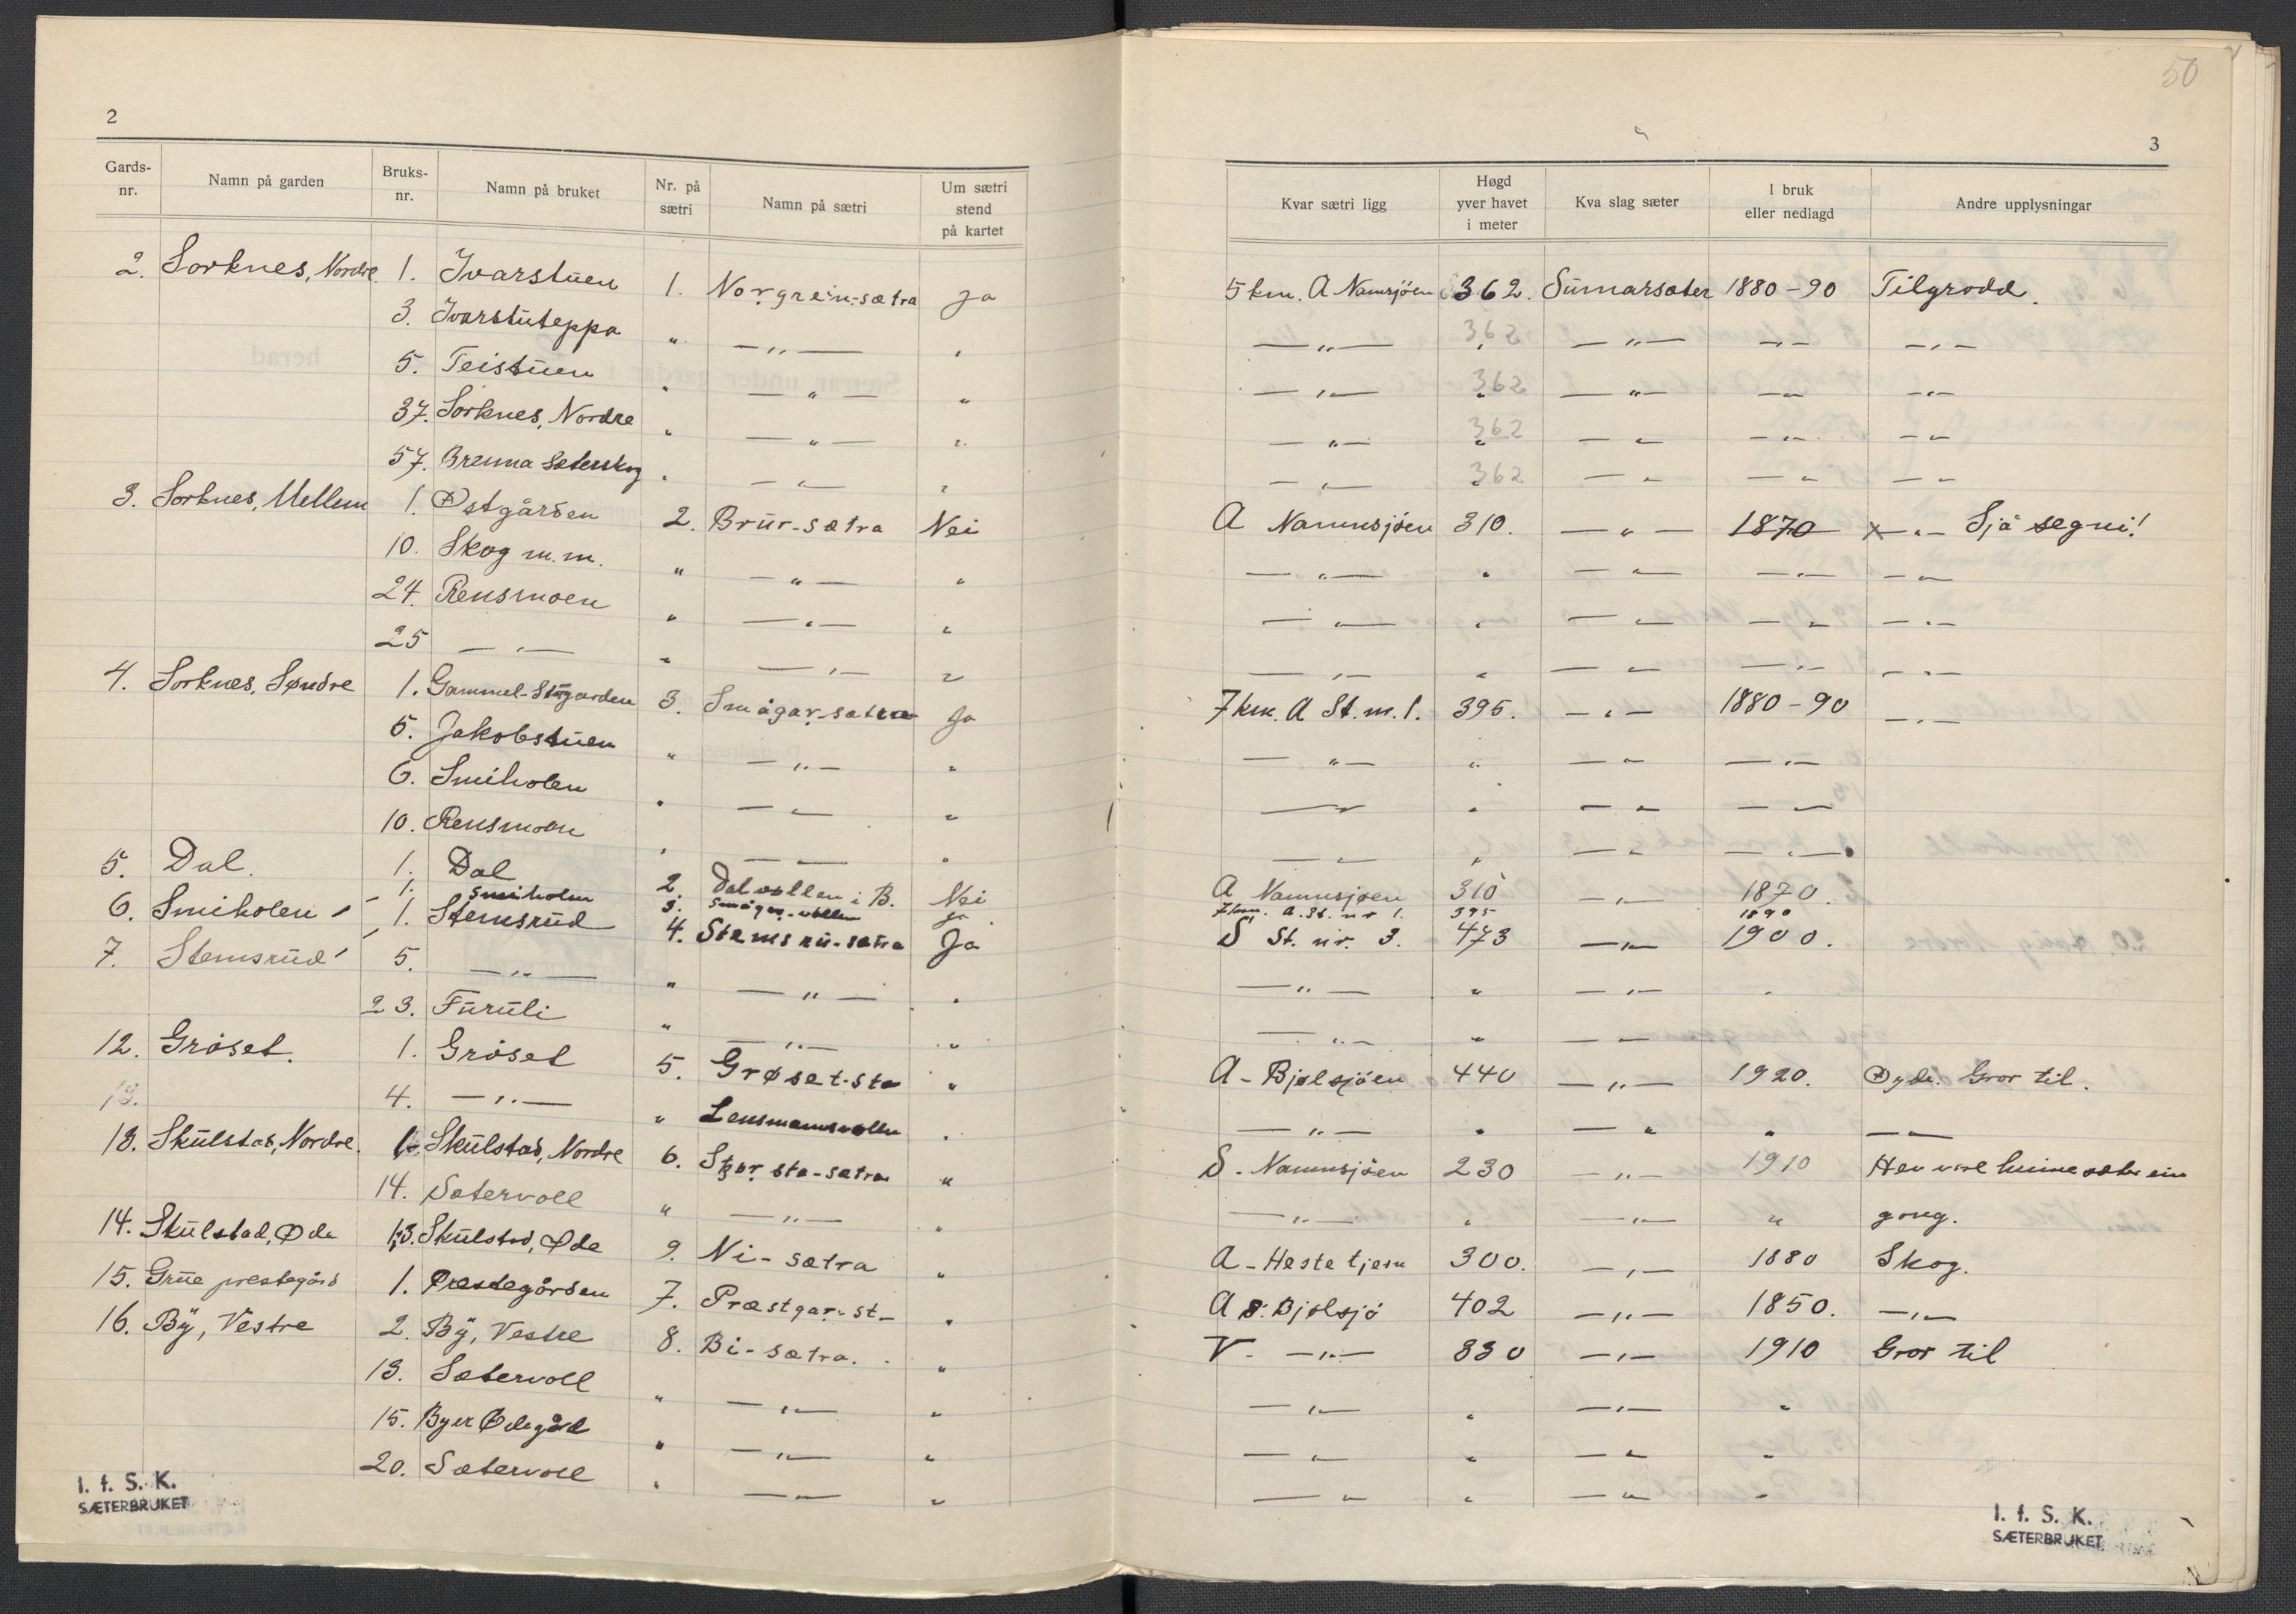 50
2
3
Gards-nr. Namn på garden Bruks-nr. Namn på bruket Nr. på sætri Namn på sætri Um sætri stend på kartet Kvar sætri ligg Høgd yver havet i meter Kva slag sæter I bruk eller nedlagd Andre upplysningar
2. Sorknes, Nordre 1. Ivarstuen 1. Norgrein-sætra Ja 5 km. A Namsjöen 362. Sumarsæter 1880-90 Tilgrodd.
3. Ivarstuteppa " — " — " — " — 362 " — " — — " — — " —
5. Teistuen " — " — " — " — 362 " — " — — " — — " —
37. Sorknes, Nordre " — " — " — " — 362 " — " — — " — — " —
57. Brenna Seterskog " — " — " — " — 362 — " — — " — — " —
3. Sorknes, Mellem 1. Østgården 2. Brur-sætra Nei A Namnsjöen 310. — " — 1870 x — " — Sjå segni!
10. Skog m.m. " — " — " — " — " — " — — " — — " —
24. Rensmoen " — " — " — " — " — " — — " — — " —
25 — " — " — " — " — " — " — " — — " — — " —
4. Sorknes, Søndre 1. Gammel-Stugarden 3. Smågar-sætra Ja 7 km. A St. nr. 1. 395. — " — 1880-90 — " —
5. Jakobstuen " — " — " — " — " — " — — " —
6. Smiholen " — " — " — " — " — " — — " —
10. Rensmoen " — " — " — " — " — " — — " —
5. Dal. 1. Dal 2. Dalvollen i B. Nei A Namnsjøen 310 — " — 1870.
6. Smiholen 1. Smiholen 3. Smågar-vollen Ja 7 km. A. St. nr 1. 395 1890
1. Stemsrud 4. Stemsru-sætra Ja S St. nr. 3. 473 — " — 1900.
7. Stemsrud 5. — " — " — " — " — " — " — " — "
23. Furuli " — " — " — " — " — " —
12. Gröset. 1. Gröset 5. Grøset-str " A - Bjølsjöen 440 — " — 1920. Øyde. Gror til.
13. 4. — " — " Lensmannsvollen " — " — " — " — " — " —
13. Skulstad, Nordre. 1. Skulstad, Nordre 6. Skorsta-sætra " S. Namnsjöen 230 — " — 1910 Hev vore heimesæter ein
14. Sætervoll " — " — " — " — " — " — " gong.
14. Skulstad, Øde 13. Skulstad, Øde 9. Ni-sætra " A - Hestetjern 300. — " — 1880 Skog.
15. Grue prestegård 1. Prestegården 7. Præstgar-st- " A S. Bjølsjö 402 — " — 1850. — " —
16. By, Vestre 2. By, Vestre 8. Bi-sætra. " V - — " — 330 — " — 1910 Gror til
13. Sætervoll " — " — " — " — " — " — "
15. Byer Ødegård " — " — " — " — " — " — "
20. Sætervoll " — " — " — " — " — " — "
I. f. S. K.
SÆTERBRUKET
I. f. S. K.
SÆTERBRUKET